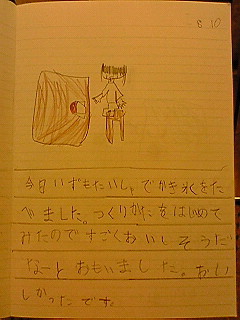 8.10
今日いずもたいしゃでかき氷をた
べました。つくりかたをはじめて
みたのですごくおいしそうだ
なーとおもいました。おい
しかったです